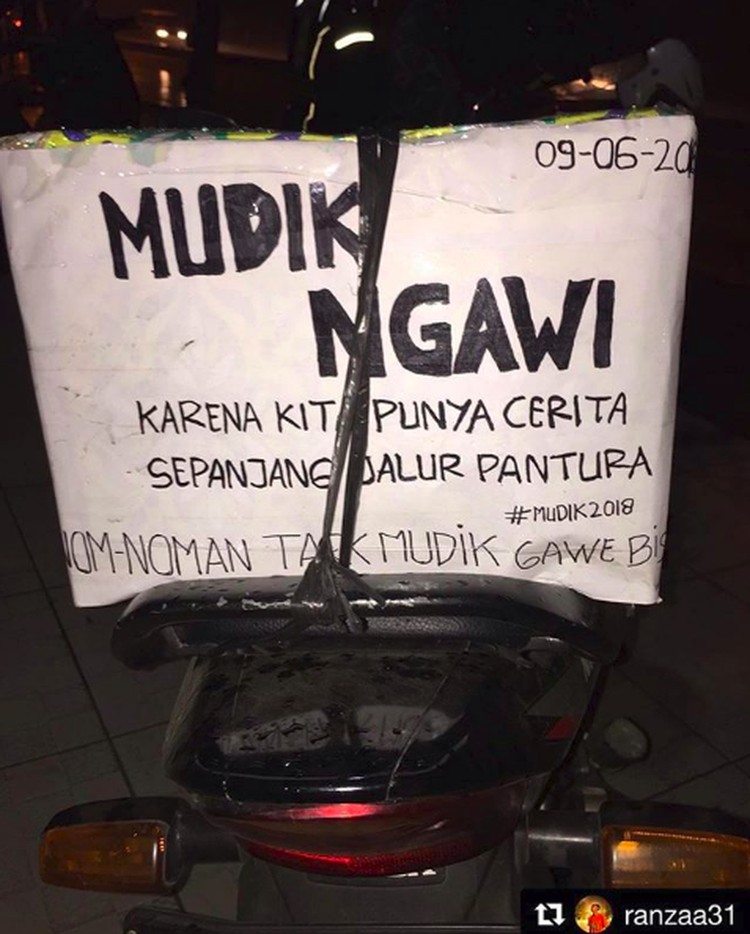 09-06-20
MUDIK
NGAWI
KARENA KITA PUNYA CERITA
SEPANJANG JALUR PANTURA
#MUDIK2018
NOM-NOMAN TAK MUDIK GAWE BiS
ranzaa31